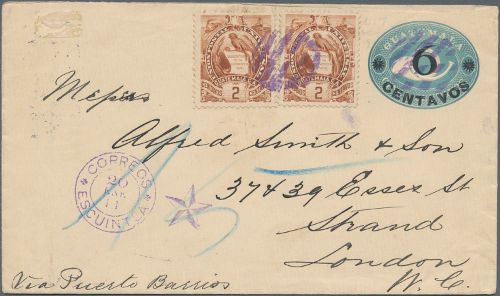 GUATEMALA
6
CENTAVOS
GUATEMALA
2
2
GUATEMALA
2
2
Messrs
Alfred Smith & Son
37 & 39 Essex St
Strand
London
W. C.
CORREOS
20
11
ESCUINTLA
Via Puerto Barrios